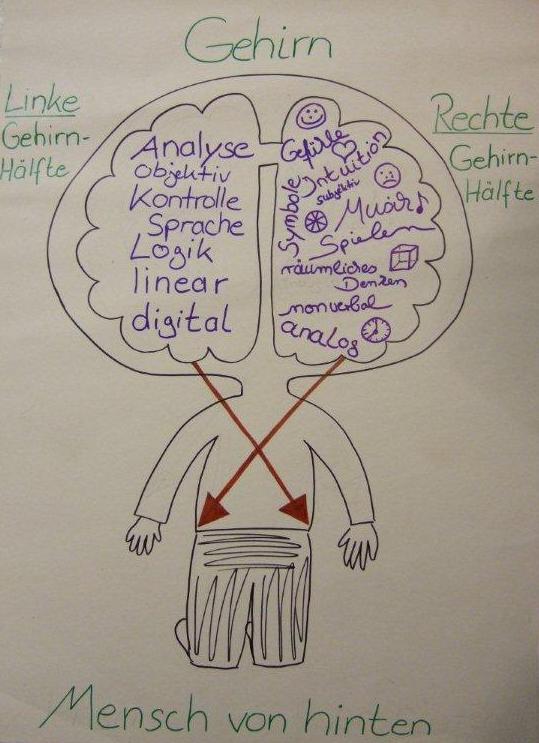 Gehirn
Linke
Gehirn-
Hälfte
Rechte
Gehirn-
Hälfte
Analyse
objektiv
Kontrolle
Sprache
Logik
linear
digital
Gefühle
Intuition
subjektiv
Symbole
Musik
Spielen
räumliches
Denken
nonverbal
analog
Mensch von hinten